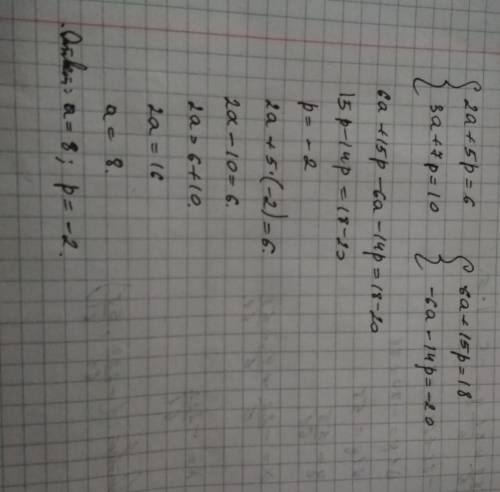 { 2a + 5p = 6   { 6a + 15p = 18
{ 3a + 7p = 10   { -6a - 14p = -20
6a + 15p - 6a - 14p = 18 - 20
15p - 14p = 18 - 20
p = -2
2a + 5·(-2) = 6.
2a - 10 = 6.
2a = 6 + 10.
2a = 16
a = 8.
Ответ: a = 8; p = -2.